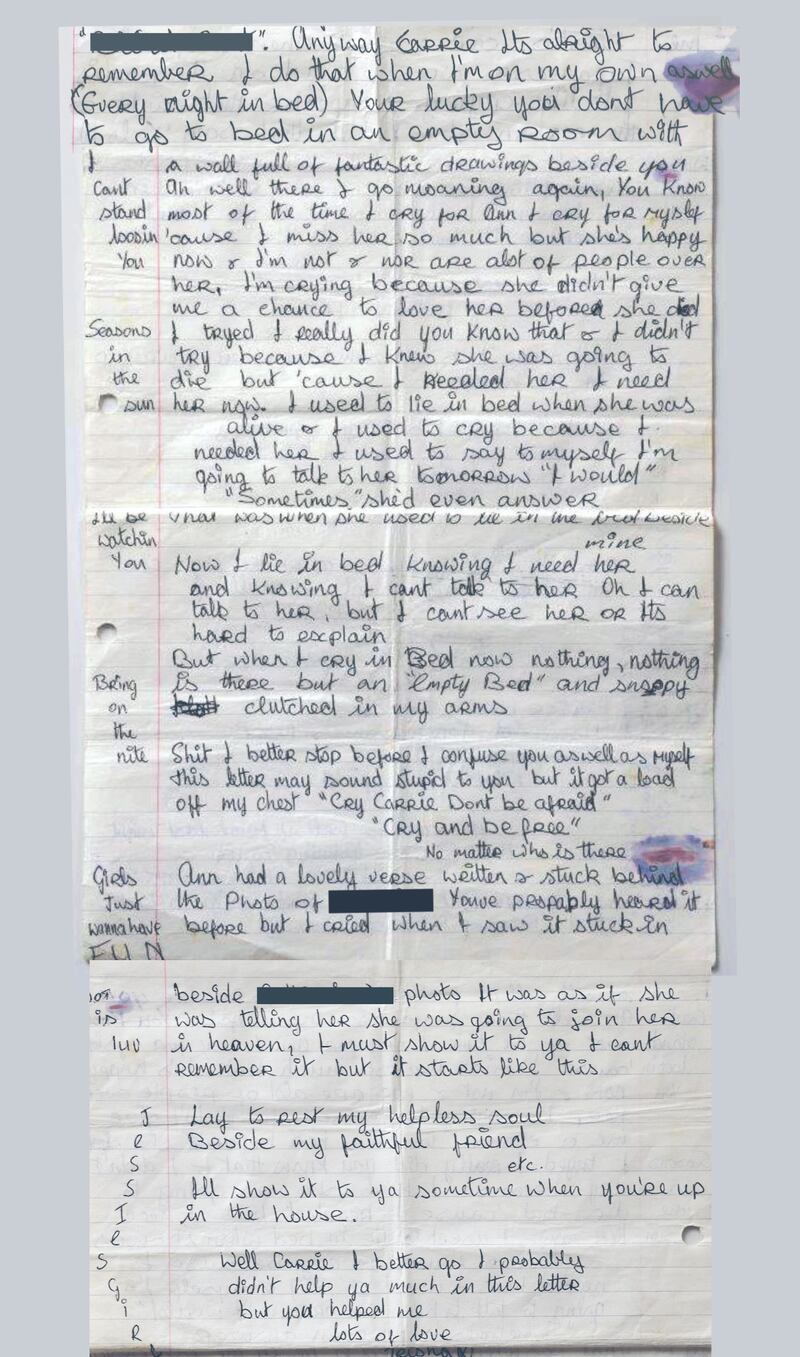 ". Anyway Carrie Its alright to
remember I do that when I'm on my own aswell
(Every night in bed) Your lucky you dont have
to go to bed in an empty room with
I a wall full of fantastic drawings beside you
Cant Ah well there I go moaning again, You Know
stand most of the time I cry for Ann I cry for myself
loosin 'cause I miss her so much but she's happy
You now & I'm not & nor are alot of people over
her, I'm crying because she didn't give
me a chance to love her before she died
Seasons I tryed I really did you know that & I didn't
in try because I knew she was going to
the die but 'cause I needed her I need
sun her now. I used to lie in bed when she was
alive & I used to cry because I
needed her I used to say to myself I'm
going to talk to her tomorrow "I would"
"Sometimes" she'd even answer
I'll be that was when she used to lie in the bed beside
watchin mine
You Now I lie in bed knowing I need her
and knowing I cant talk to her Oh I can
talk to her, but I cant see her or Its
hard to explain
But when I cry in Bed now nothing, nothing
Bring is there but an "Empty Bed" and snoopy
on clutched in my arms
the
nite Shit I better stop before I confuse you aswell as myself
this letter may sound stupid to you but it got a load
off my chest "Cry Carrie Dont be afraid"
"Cry and be free"
No matter who is there
Girls Ann had a lovely verse written & stuck behind
Just the Photo of Youve propably heard it
wanna have before but I cried when I saw it stuck in
FUN
beside photo It was as if she
is was telling her she was going to join her
luv in heaven, I must show it to ya I cant
remember it but it starts like this
J Lay to rest my helpless soul
e Beside my faithful friend
S etc.
S I'll show it to ya sometime when you're up
I in the house.
e
S Well Carrie I better go I probably
G didn't help ya much in this letter
i but you helped me
R lots of love